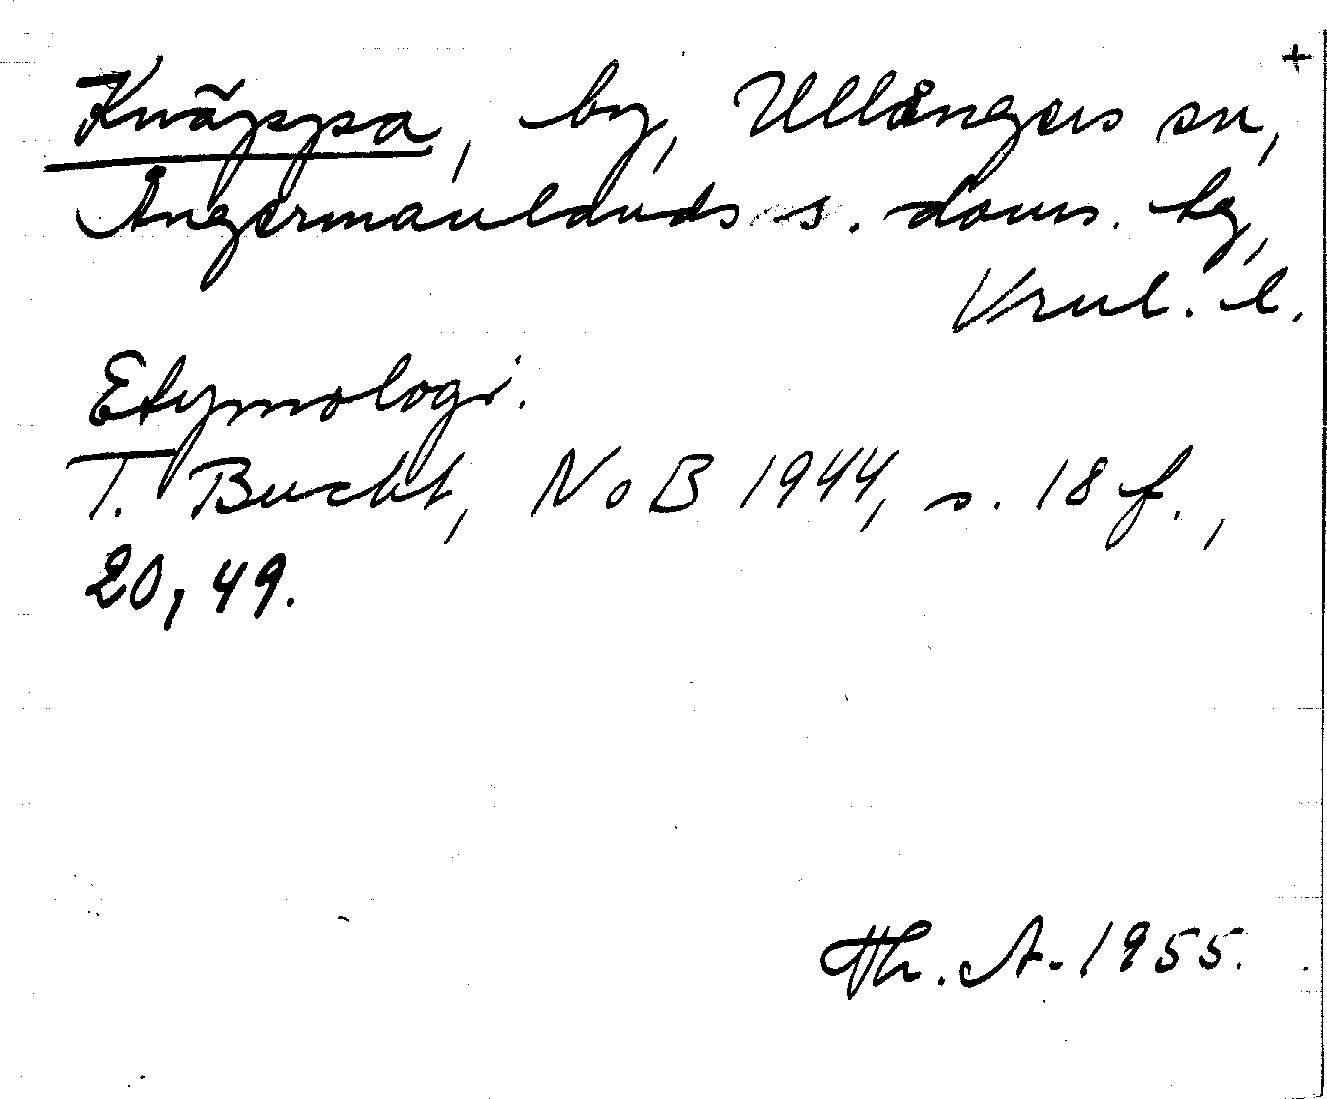 +
Knäppa, by, Ullångers sn,
Ångermanlands s. doms. hg,
Vrnl. l.
Etymologi.
T. Bucht, NoB 1944, s. 18 f.,
20, 49.
Th. A. 1955.